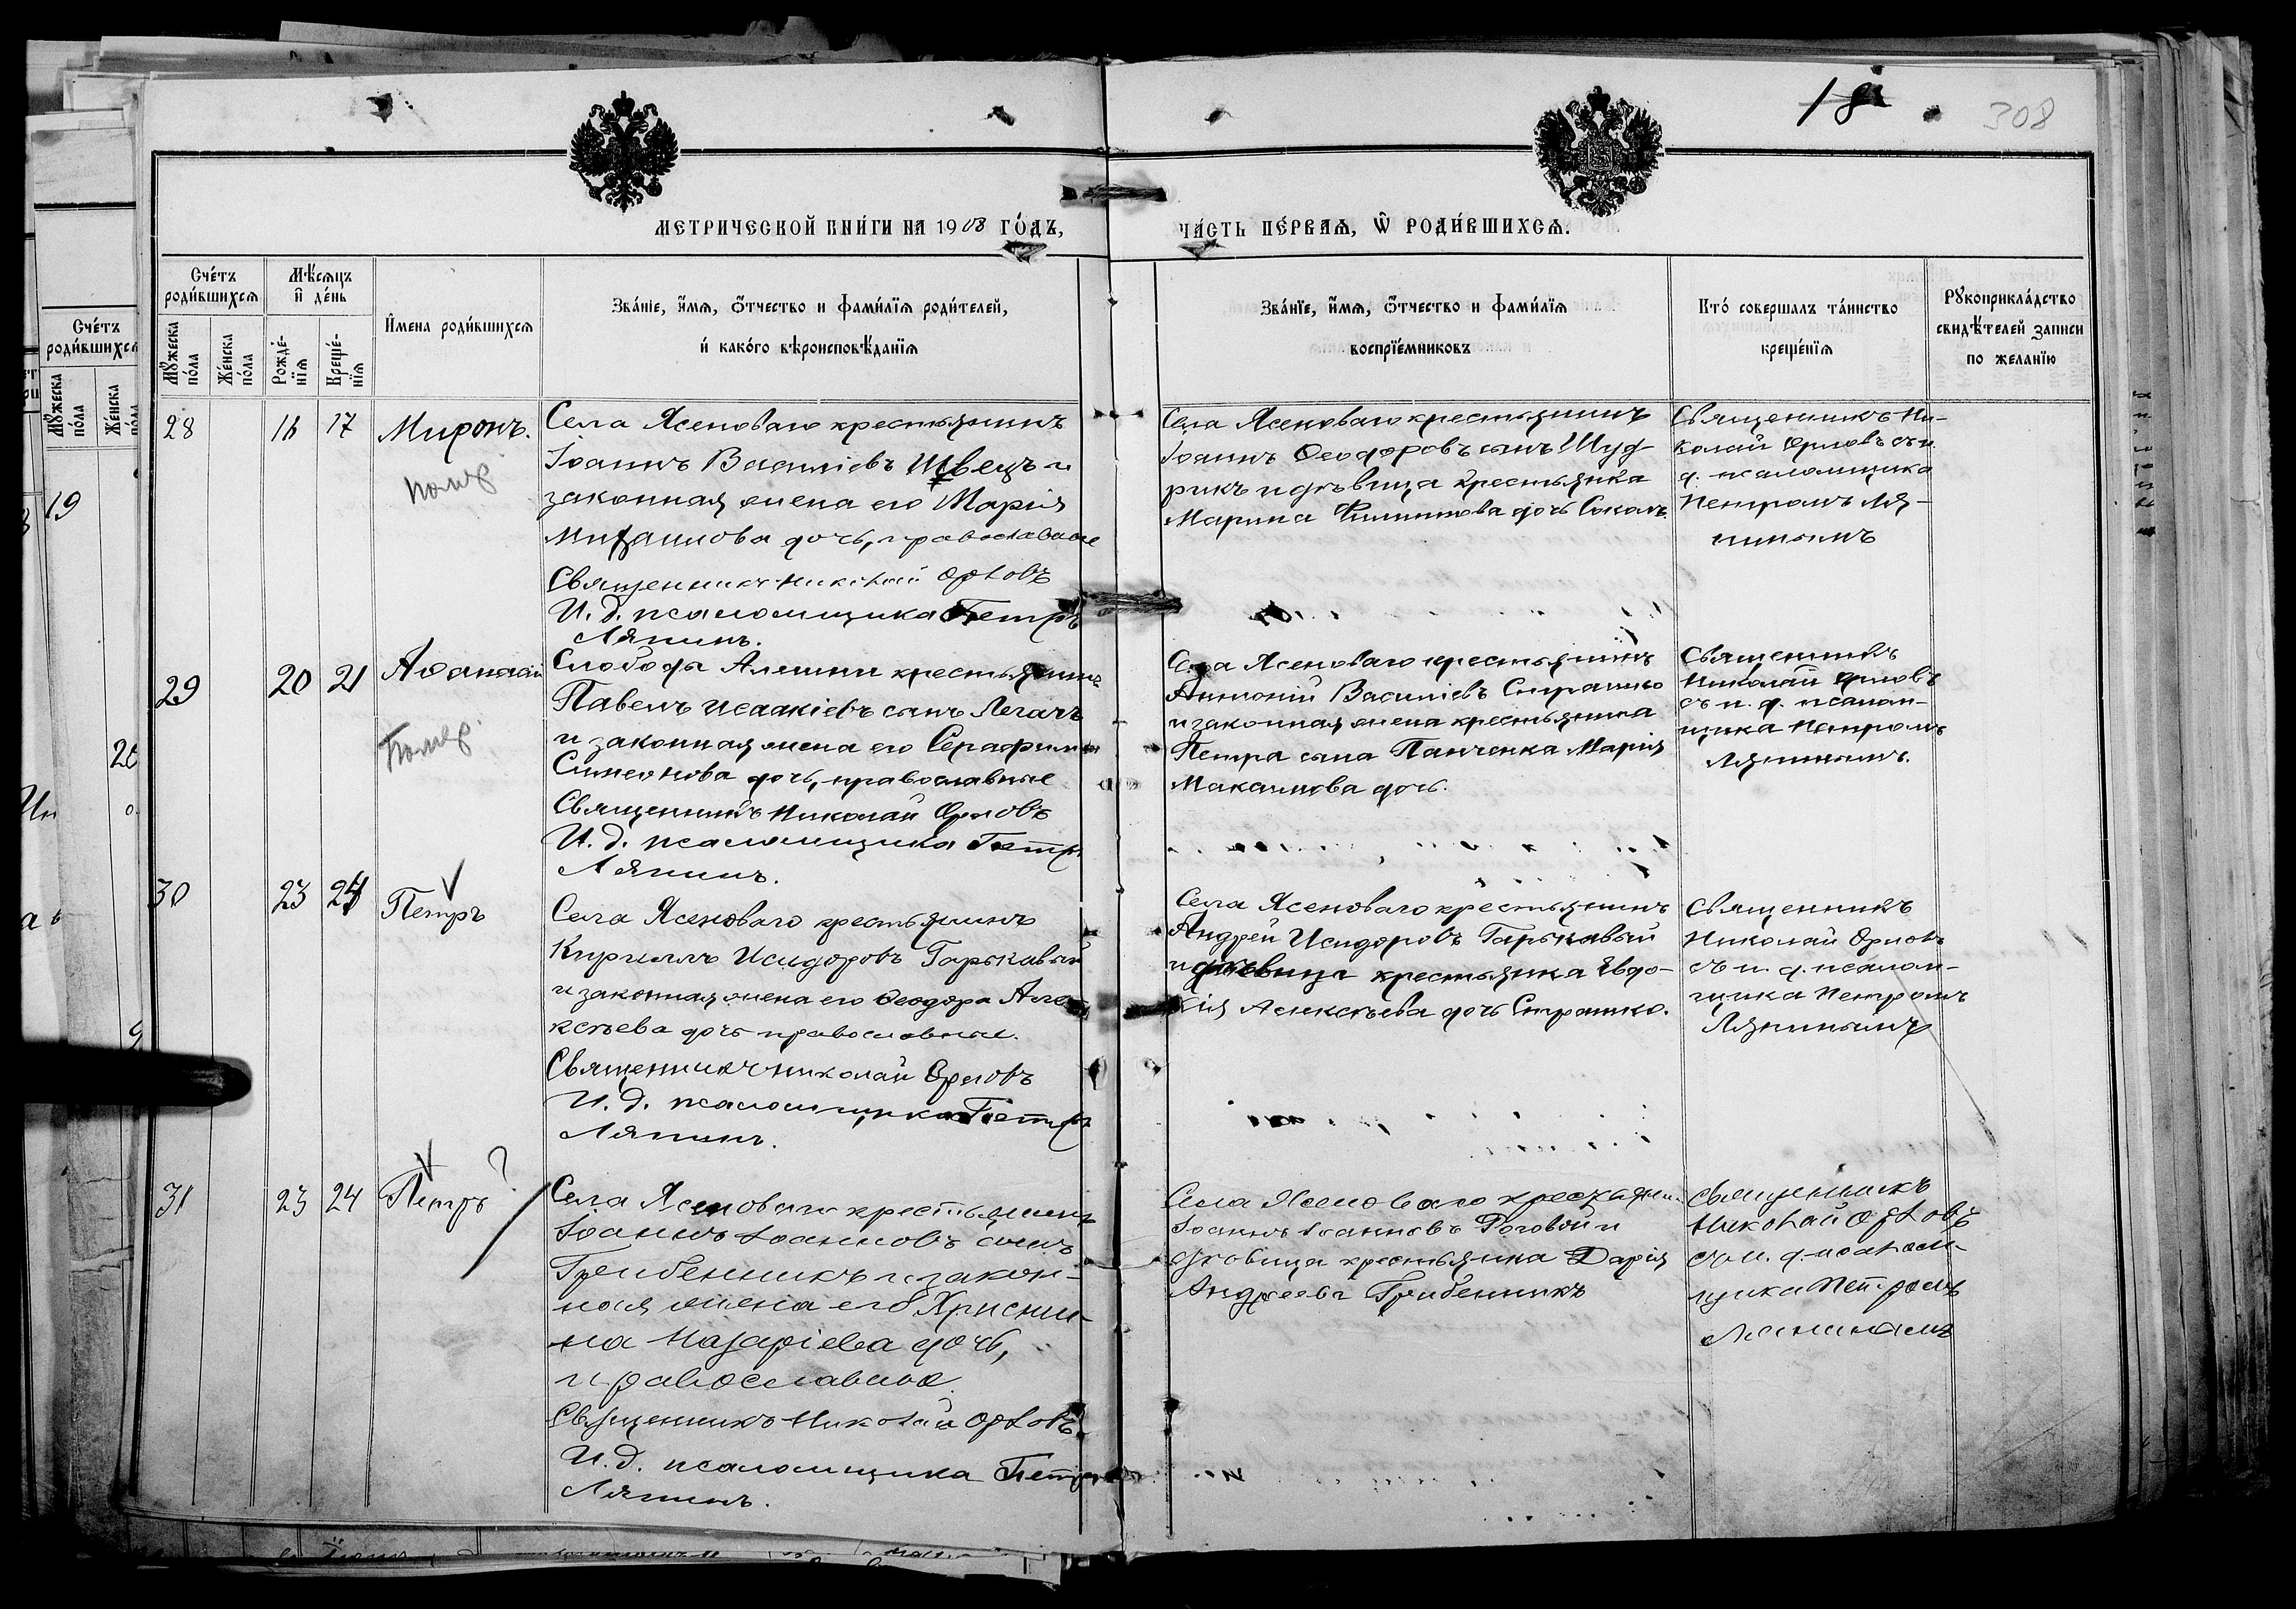 18
308
МЕТРИЧЕСКОЙ КНИ́ГИ НА 1908 ГО́ДЪ,
ЧА́СТЬ ПЕ́РВАѦ, Ѡ҆ РОДИ́ВШИХСѦ.
Сче́тъ роди́вшихсѧ
Мѣ́сѧцъ и҆ де́нь
И҆мена роди́вшихсѧ
Зва́нїе, и҆́мѧ, ѻ҆́тчество и фами́лїѧ роди́телей,
и҆ како́го вѣроисповѣ́данїѧ
Зва́нїе, и҆́мѧ, ѻ҆́тчество и фами́лїѧ
воспрїе́мниковъ
Кто́ совершалъ та́инство
креще́нїѧ
Рꙋкоприкла́дство
свидѣ́телей записи
по жела́нїю
Мꙋ́жеска по́ла
Же́нска по́ла
Рожде́нїѧ
Креще́нїѧ
28
16
17
Миронъ.
помер
Села Ясеноваго крестьянинъ
Іоаннъ Василіевъ Швецъ и
законная жена его Марія
Михаилова дочь, православные
Священникъ Николай Орловъ
И. д. псаломщика Петръ
Ляпинъ.
Села Ясеноваго крестьянинъ
Іоаннъ Феодоровъ сынъ Шуд-
рикъ и дѣвица крестьянка
Марина Филиппова дочь Сокалъ.
Священникъ Ни-
колай Орловъ съ и.
д. псаломщика
Петромъ Ля-
пинымъ
29
20
21
Афанасій
Помер.
Слободы Алешки крестьянинъ
Павелъ Исаакіевъ сынъ Легачъ
и законная жена его Серафима
Симеонова дочь, православные
Священникъ Николай Орловъ
И. д. псаломщика Петръ
Ляпинъ.
Села Ясеноваго крестьянинъ
Антоній Василіевъ Страшко
и законная жена крестьянина
Петра сына Панченка Марія
Максимова дочь.
Священникъ
Николай Орловъ
съ и. д. псалом-
щика Петромъ
Ляпинымъ.
30
23
24
Петръ
Села Ясеноваго крестьянинъ
Кириллъ Исидоровъ Гарькавый
и законная жена его Феодора Але-
ксѣева дочь православные.
Священникъ Николай Орловъ
И. д. псаломщика Петръ
Ляпинъ.
Села Ясеноваго крестьянинъ
Андрей Исидоровъ Гарькавый
и дѣвица крестьянка Евдо-
кія Алексѣева дочь Страшко.
Священникъ
Николай Орловъ
съ и. д. псалом-
щика Петромъ
Ляпинымъ
31
23
24
Петръ
?
Села Ясеноваго крестьянинъ
Іоаннъ Іоанновъ сынъ
Гребенникъ и закон-
ная жена его Христи-
на Назаріева дочь,
православные.
Священникъ Николай Орловъ
И. д. псаломщика Петръ
Ляпинъ.
Села Ясеноваго крестьянинъ
Іоаннъ Іоанновъ Роговой и
дѣвица крестьянка Дарія
Андреева Гребенникъ
Священникъ
Николай Орловъ
съ и. д. псалом-
щика Петромъ
Ляпинымъ
Сче́тъ
роди́вшихсѧ
Мꙋ́жеска по́ла
Же́нска
19